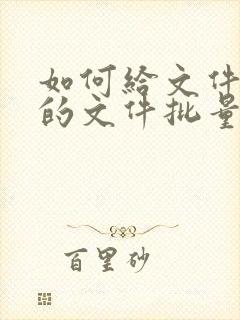 如何给文件
的文件批量
百里砂